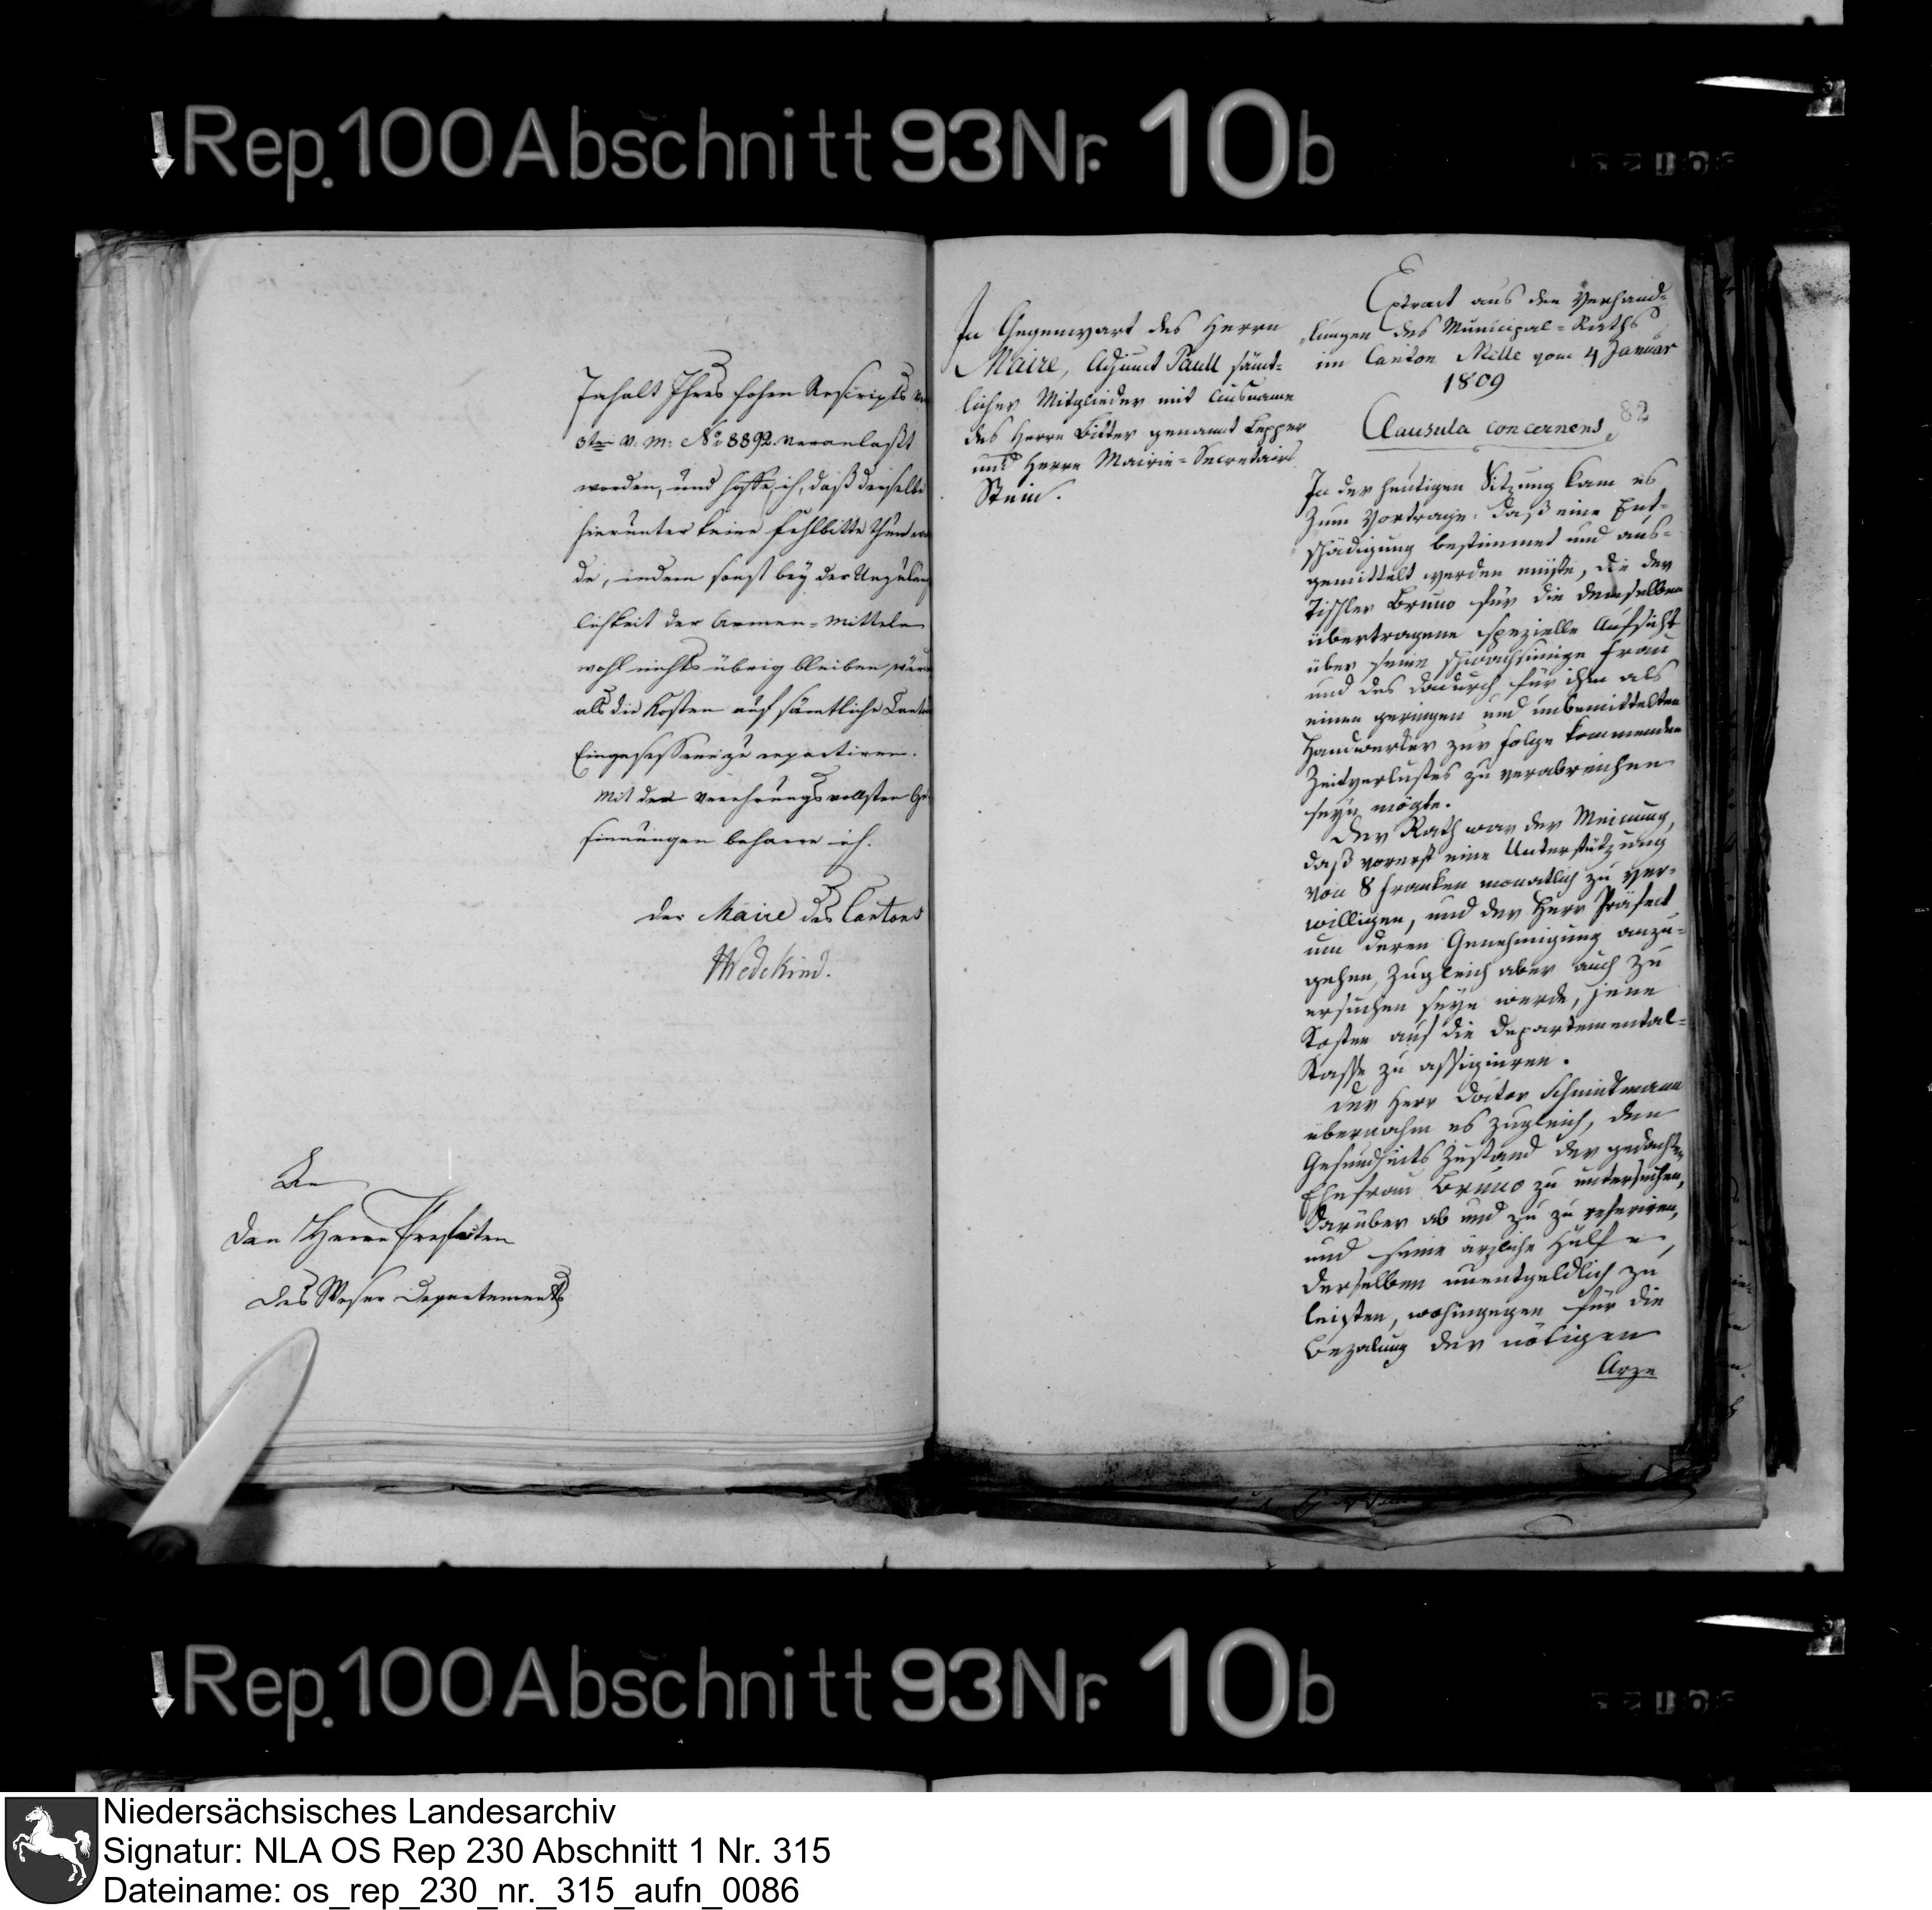 Rep. 100 Abschnitt 93 Nr. 10b
Inhalt Ihres hohen Rescripts
3ten v. M. No 8892. veranlaßt
worden, und hoffe ich, daß dieselbe
hierunter keine Fehlbitte thun
de, indem sonst bey der Unzuläng
lichkeit der Armen-Mitteln
wohl nichts übrig bleiben würde
als die Kosten auf sämtliche Canton
Eingesessene zu repartiren.
Mit den verehrungsvollsten Ge
sinnungen beharre ich.
der Maire des Cantons
Wedekind.
An
den Herrn Prefecten
des Weser Departements
In Gegenwart des Herrn
Maire, Adjunct Paull sämt-
licher Mitglieder mit Ausname
des Herrn Bitter genannt Lepper
und Herrn Mairie-Secretairs
Stein.
Extract aus den Verhand-
lungen des Municipal-Raths
im Canton Melle vom 4 Januar
1809
82
Clausula concernens,
In der heutigen Sitzung kam es
zum Vortrage: daß eine Ent-
schädigung bestimmet und aus-
gemittelt werden müste, die der
Tischler Bruno für die demselben
übertragene spezielle Aufsicht
über seine schwachsinnige Frau
und des dadurch für ihn als
einen geringen und unbemittelten
Handwerker zur Folge kommenden
Zeitverlustes zu verabreichen
seyn mögte.
Der Rath war der Meinung,
daß vorerst eine Unterstützung
von 8 Franken monatlich zu ver-
willigen, und der Herr Präfect
um deren Genehmigung anzu-
gehen, zugleich aber auch zu
ersuchen seyn werde, jene
Kosten auf die Departemental-
Kasse zu assigniren.
Der Herr Doctor Schmidtmann
übernahm es zugleich, den
Gesundheits Zustand der gedachten
Ehefrau Bruno zu untersuchen,
darüber ab und zu zu referiren,
und seine ärzliche Hülfe,
derselben unentgeldlich zu
leisten, wohingegen für die
Bezalung der nötigen
Arze
Rep. 100 Abschnitt 93 Nr. 10b
Niedersächsisches Landesarchiv
Signatur: NLA OS Rep 230 Abschnitt 1 Nr. 315
Dateiname: os_rep_230_nr._315_aufn_0086